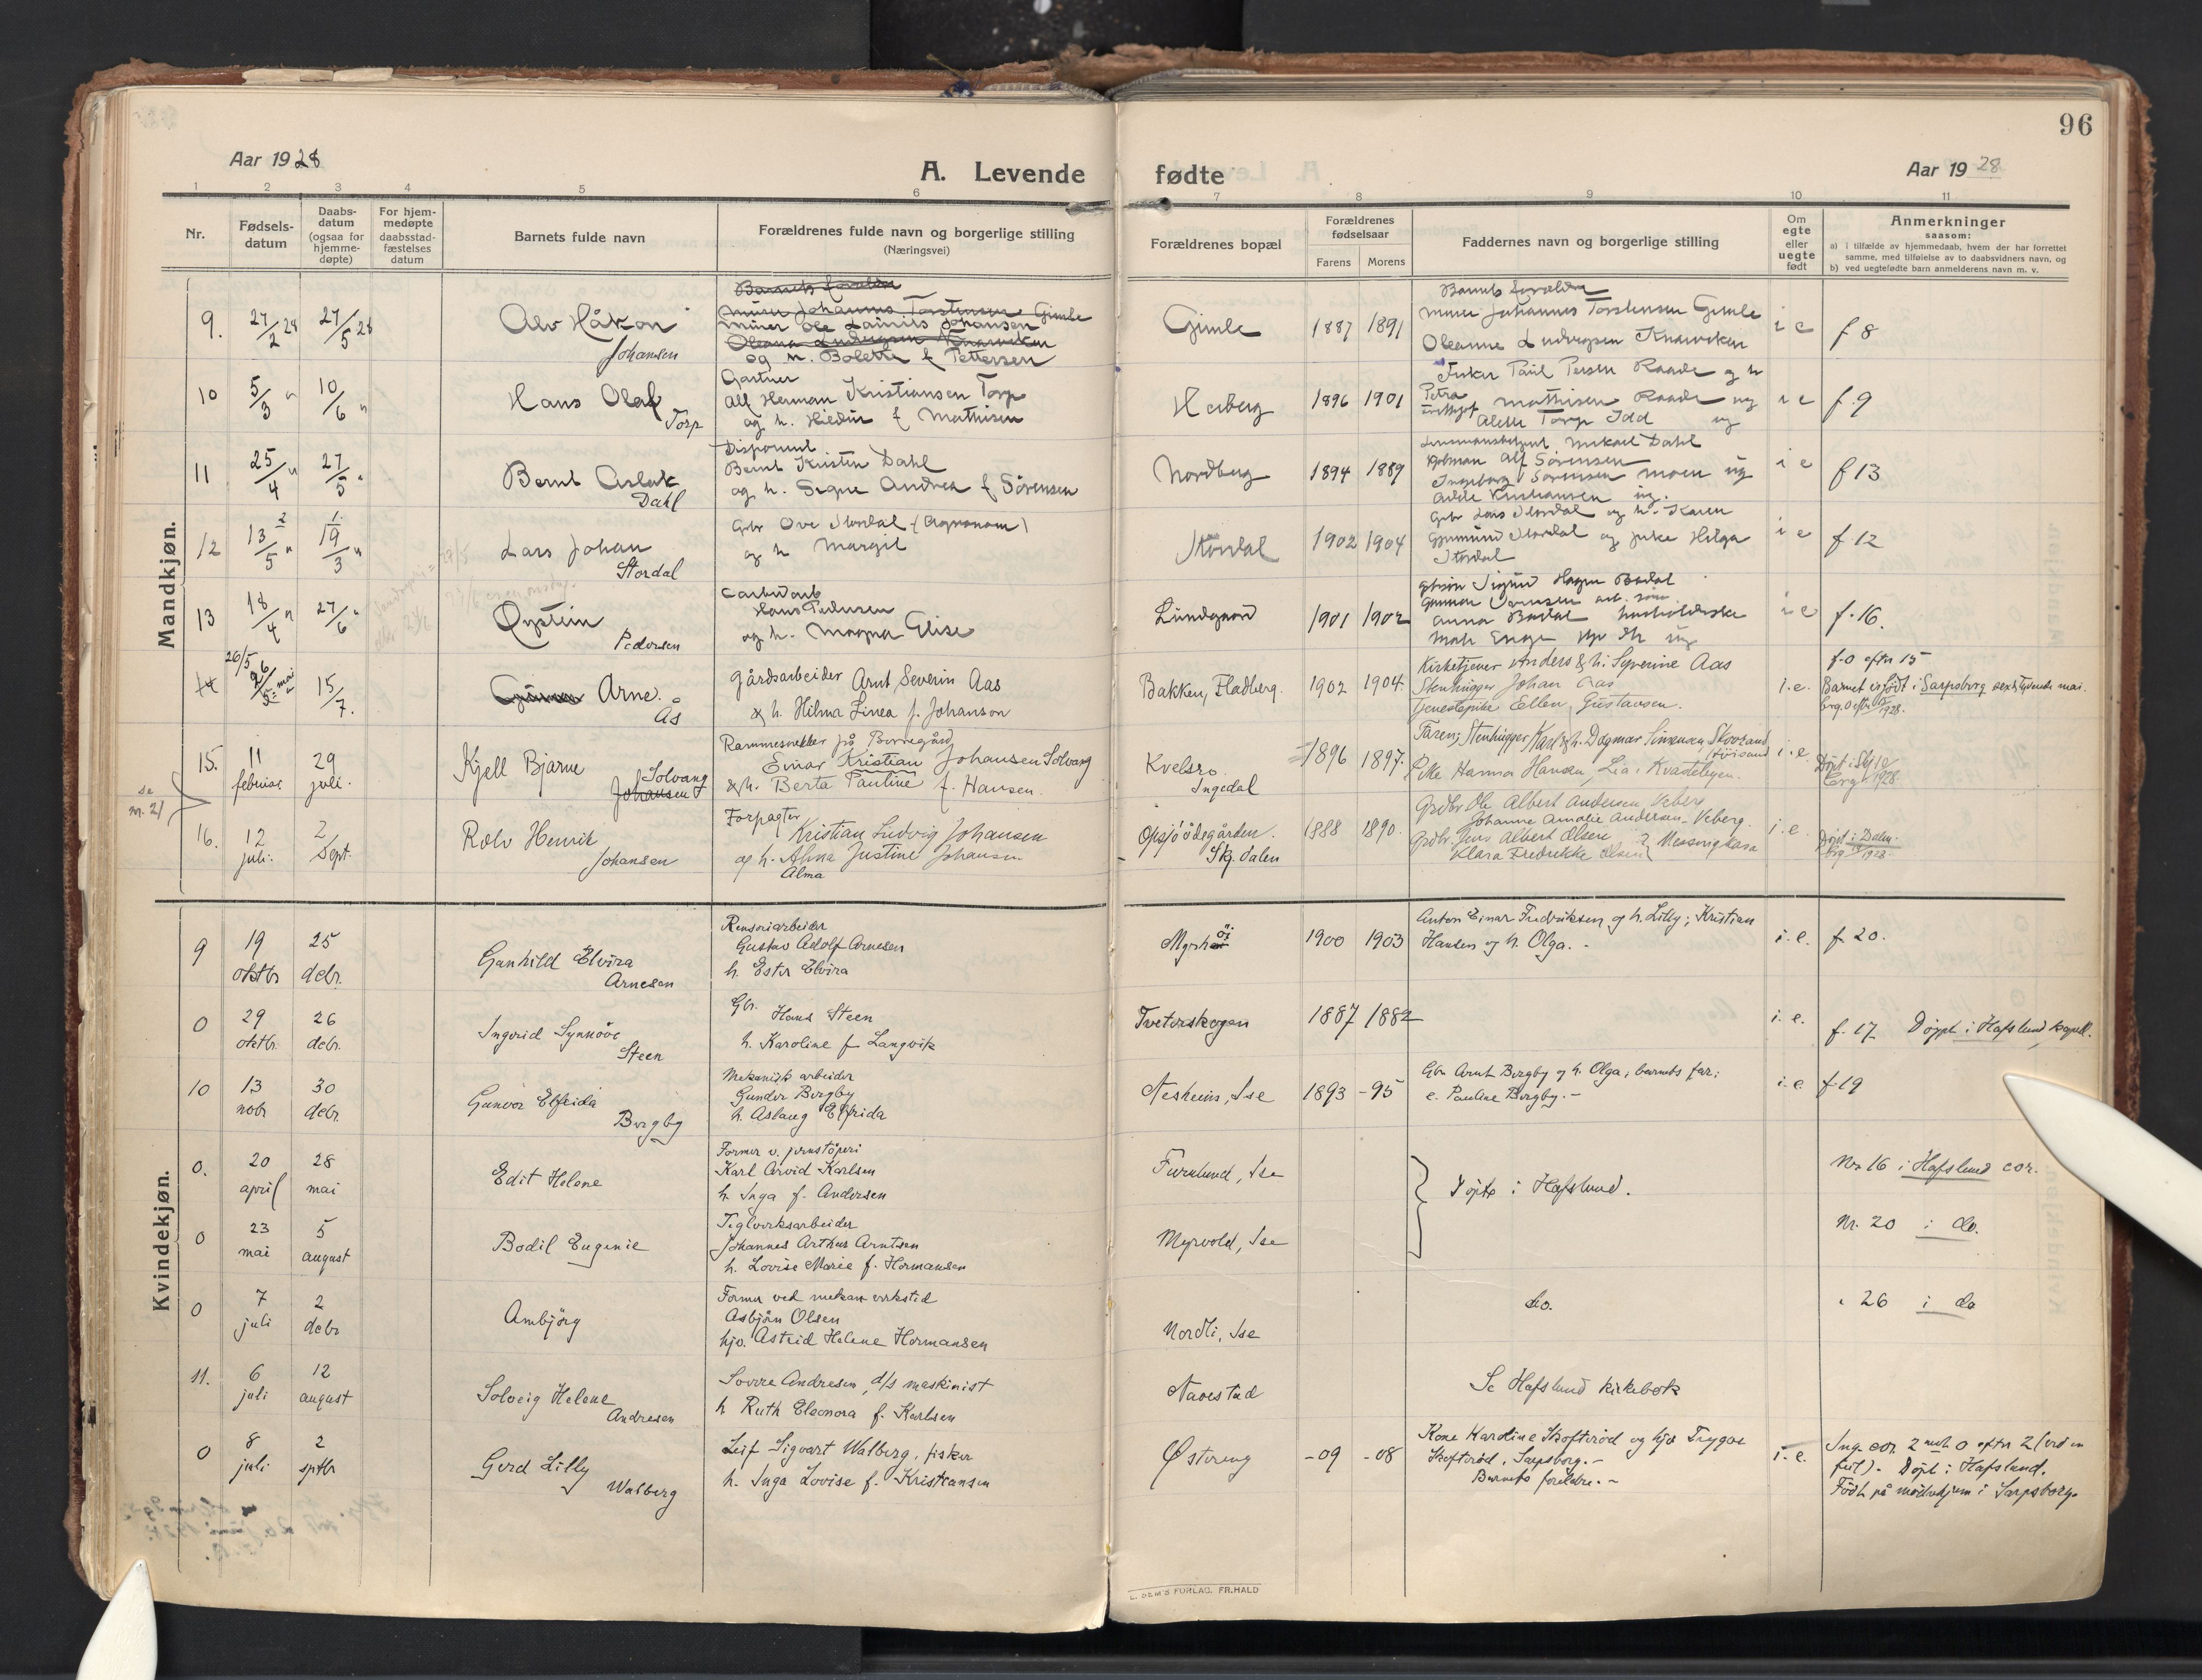 96
Aar 1928
A. Levende
fødte
Aar 1928
1 2 3 4 5 6 7 8 9 10 11
Nr.
Fødsels-
datum
Daabs-
datum
(ogsaa for
hjemme-
døpte)
For hjem-
medøpte
daabsstad-
fæstelses
datum
Barnets fulde navn
Forældrenes fulde navn og borgerlige stilling
(Næringsvei)
Forældrenes bopæl
Forældrenes
fødselsaar
Farens Morens
Faddernes navn og borgerlige stilling
Om
egte
eller
uegte
født
Anmerkninger
saasom:
a) i tilfælde av hjemmedaab, hvem der har forrettet
samme, med tilføielse av to daabsvidners navn, og
b) ved uegtefødte barn anmelderens navn m. v.
Mandkjøn.
9. 27/2 28 27/5 28
Alv Håkon
Johansen
Barnets forældre
murer Johannes Torstensen Gimle
murer Ole Laurits Johansen
Oleana Ludvigsen Knarviken
og h. Bolette f Pettersen
Gimle
1887 1891
Barnets forældre
murer Johannes Torstensen Gimle
Oleanne Ludvigsen Knarviken
i e
f 8
10 5/3 " 10/6 "
Hans Olaf
Torp
Gartner
Alf Herman Kristiansen Torp
og h. Hildur f Mathisen
Herberg
1896 1901
Fisker Paul Persen Raade og h
Petra
Mathisen Raade ug
Alette Torp Idd ug
i e
f. 9
11 25/4 " 27/5 "
Bernt Aslak
Dahl
Disponent
Bernt Kristen Dahl
og h. Signe Andrea f Sörensen
Nordberg
1894 1889
Lensmansbetjent Mikael Dahl
Alf Sörensen
Ingeborg Sörensen Moen ug
Kristiansen ug.
i e
f 13
12 13/5 " 19/3 "
Lars Johan
Stordal
Gbr Ove Stordal (Agronom)
og h Margit
Stordal
1902 1904
Gbr Lars Stordal og h. Karen
Gunmund Stordal og pike Helga
Stordal
i e
f. 12
13 18/4 " 27/6 "
Øystein
Pedersen
Carbidarb
Hans Pedersen
og h. Magna Elise
Lundgaard
1901 1902
Sigurd Hagen Baadal
Gunnar
Anna Baadal husholderske
i e
f. 16.
14 26/5 26/5 = mai 15/7.
Arne.
Ås
gårdsarbeider Arnt Severin Aas
& h. Hilma Linea f. Johanson
Bakken, Fladberg.
1902 1904.
Kirketjener Anders & h. Syverine Aas
Stenhugger Johan Aas
tjenestepike Ellen Gustavsen.
i. e.
f. 0 efter 15
Barnet er født i Sarpsborg sekstyvende mai.
1928.
15. 11 februar 29 juli.
Kjell Bjarne
Solvang
Johansen
Rammesnekker på Borregård
Einar Kristian Johansen Solvang
& h. Berta Pauline f. Hansen.
Kvelsro
Ingedal
1896 1897.
Faren; Stenhugger Karl & h. Dagmar Simensen, Skovsand
Høisand
Pike Hanna Hansen, Lia i Kvastebyen.
i. e.
Døpt i Skj
1928.
se
nr. 21
16. 12 juli. 2 Sept.
Rolv Henrik
Johansen
Forpagter
Kristian Ludvig Johansen
og h. Alma Justine Johansen
Alma
Opsjöödegården.
Skj. dalen
1888 1890.
Grdbr. Ole Albert Andersen Veberg
Johanne Amalie Andersen Veberg.
Grdbr. Jens Albert Olsen
Klara Fredrikke Olsen } Messingkasa
i. e.
Døpt i Dalen.
1928.
Kvindekjøn.
9 19 oktbr 25 debr.
Gunhild Elvira
Arnesen
Renseriarbeider
Gustav Adolf Arnesen
h. Ester Elvira
Myrhöi
1900 1903
Anton Einar Fredriksen og h. Lilly; Kristian
Hansen og h. Olga. -
i. e.
f. 20.
0 29 oktbr. 26 debr.
Ingerid Synnöve
Steen
Gbr.
Hans Steen
h. Karoline f Langvik
Tveterskogen
1887 1882
i. e.
f. 17 Döpt i Hafslund kapell.
10 13 nobr 30 debr.
Gunvor Elfrida
Bergby
Mekanisk arbeider
Gunder Bergby
h. Aslaug Elfrida
Nesheim, Ise
1893 -95
Gbr Arnt Bergby og h. Olga, barnets far;
e. Pauline Bergby. -
i. e
f 19
0. 20 april 28 mai
Edit Helene
Former v. jernstöperi
Karl Arvid Karlsen
h. Inga f. Andersen
Furulund, Ise
Döpte i Hafslund.
No 16 i Hafslund cor.
0 23 mai 5 august
Bodil Eugenie
Teglverksarbeider
Johannes Arthur Arntsen
h. Lovise Marie f. Hermansen
Myrvold, Ise
Nr. 20 i do.
0 7 juli 2 debr
Ambjörg
Former ved mekan verksted
Asbjörn Olsen
hjo. Astrid Helene Hermansen
Nordli, Ise
do.
" 26 i do
11. 6 juli 12 august
Solveig Helene
Andresen
Sverre Andresen, d/s maskinist
h. Ruth Eleonora f. Karlsen
Navestad
Se Hafslund kirkebok
0 8 juli 2 sptbr
Gerd Lilly
Walberg
Leif Sigvart Walberg, fisker
h. Inga Lovise f. Kristiansen
Østereng
-09 -08
Kone Karoline Skofteröd og hjo Trygve
Skofteröd, Sarpsborg. -
Barnets foreldre. -
i. e.
Ing. cor. 2 med 0 efter 2 (ved en
feil). Döpt i Hafslund.
Födt på mödrehjem i Sarpsborg.
E. SEM'S FORLAG, FR.HALD